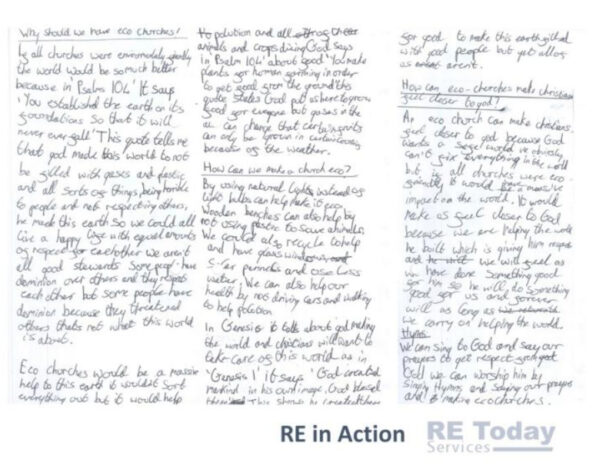 Why should we have eco churches?
If all churches were enviromentaly friendly
the world would be so much better
because in 'Psalm 104' It says
'You established the earth on its
foundations So that it will
never ever fall' This quote tells me
that god made this world to not
be filled with gases and plastic
and all sorts of things, being horrible
to people and not respecting others,
he made this earth So we could all
live a happy life with equal amounts
of respect for eachother we aren't
all good stewards Some people have
dominion over others and they respect
each other but some people have
dominion because they threatened
others thats not what this world
is about.
Eco churches would be a massive
help to this earth it wouldn't Sort
everything out but it would help
polution and all
animals and crops God says
in Psalm 104 about good 'You make
plants for human farming in order
to get food from the ground' this
quote states God put us here to grow
food for everyone but gases in the
air can change that certain fruits
can only be grown in certain
because of the weather.
How can we make a church eco?
By using natural lights instead of
light bulbs can help make it eco
Wooden benches can also help by
not using to save animals.
We could also recycle to help
and have glass windows
Solar pannels and use less
water. We can also help our
health by not driving cars and walking
to help polution
In Genesis it talks about god making
the world and christians will want to
take care of this world as in
'Genesis 1' it says 'God created
mankind in his own image, God blessed
them' This shows he created them
for good to make this earth filled
with good people but yet allot
of arent.
How can eco-churches make christians
feel closer to god?
An eco church can make christians
feel closer to god because God
wants a safe world we obviously
can't fix everything in the world
but if all churches were eco
friendly it would be a massive
impact on the world. It would
make us feel closer to God
because we are helping the world
he built which is giving him respect
and we will feel as
we have done Something good
for him so he will do something
good for us and forever
will as long as
we carry on helping the world.
Hymns
We can sing to God and say our
prayers to get respect from god
God we can worship him by
singing Hymns and saying our prayers
and making ecochurches.
RE in Action
RE Today
Services